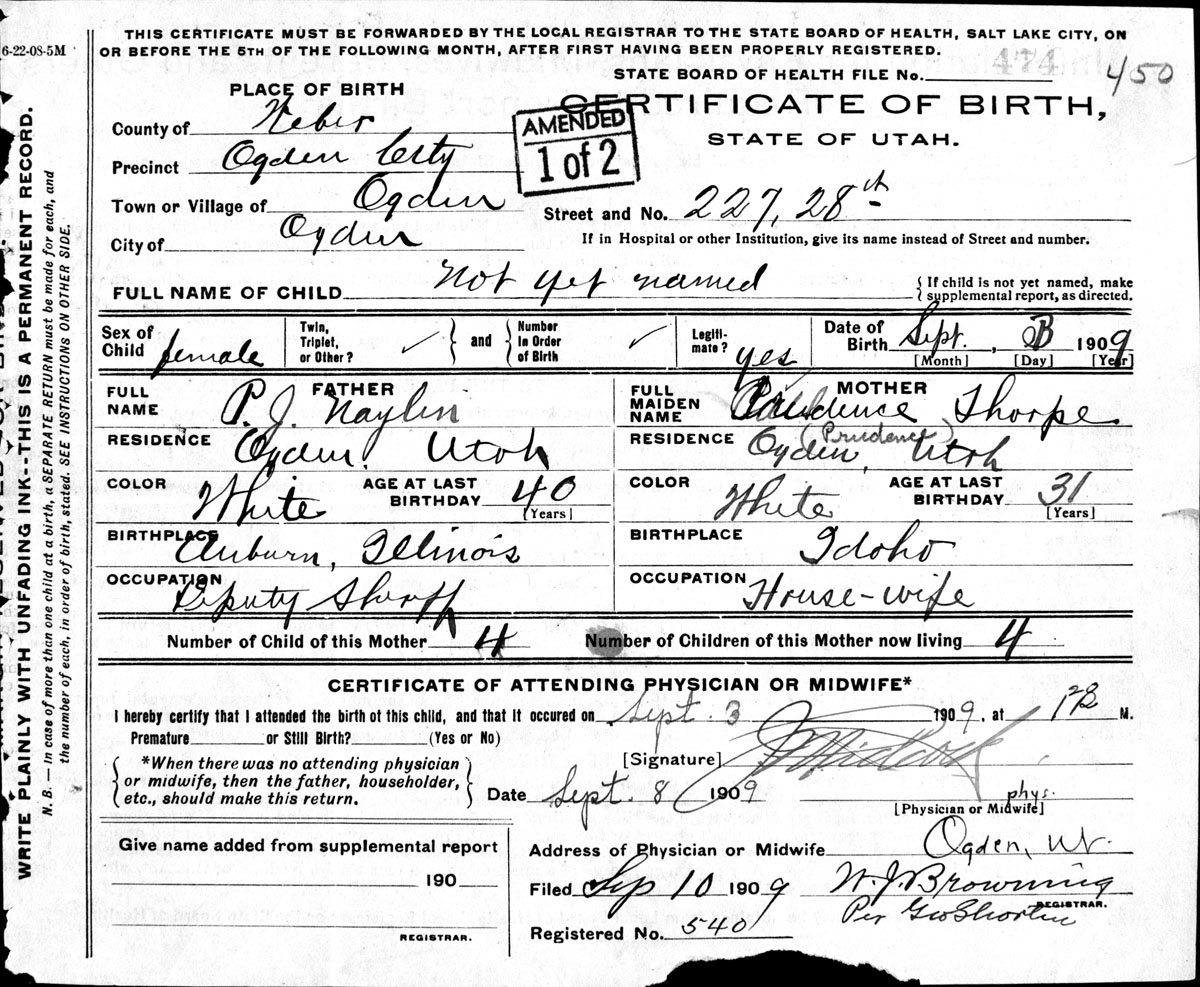 6-22-08-5M
THIS CERTIFICATE MUST BE FORWARDED BY THE LOCAL REGISTRAR TO THE STATE BOARD OF HEALTH, SALT LAKE CITY, ON
OR BEFORE THE 5TH OF THE FOLLOWING MONTH, AFTER FIRST HAVING BEEN PROPERLY REGISTERED.
STATE BOARD OF HEALTH FILE No. 474 450
PLACE OF BIRTH
CERTIFICATE OF BIRTH,
STATE OF UTAH.
AMENDED
1 of 2
County of Weber
Precinct Ogden City
Town or Village of Ogden
Street and No. 227, 28th
City of Ogden
If in Hospital or other Institution, give its name instead of Street and number.
FULL NAME OF CHILD Not yet named
If child is not yet named, make
supplemental report, as directed.
Sex of Child female
Twin, Triplet, or Other? ✓ and Number in Order of Birth ✓
Legiti-mate? yes
Date of Birth Sept. , 1909
[Month] [Day] [Year]
FATHER
FULL NAME P. J. Naylin
RESIDENCE Ogden, Utah
COLOR White AGE AT LAST BIRTHDAY 40
[Years]
BIRTHPLACE Auburn, Illinois
OCCUPATION Deputy Sheriff
MOTHER
FULL MAIDEN NAME Prudence Thorpe
(Prudence)
RESIDENCE Ogden, Utah
COLOR White AGE AT LAST BIRTHDAY 31
[Years]
BIRTHPLACE Idaho
OCCUPATION House-wife
Number of Child of this Mother 4 Number of Children of this Mother now living 4
CERTIFICATE OF ATTENDING PHYSICIAN OR MIDWIFE*
I hereby certify that I attended the birth of this child, and that it occured on Sept. 3 1909, at M.
Premature or Still Birth? (Yes or No)
*When there was no attending physician
or midwife, then the father, householder,
etc., should make this return.
[Signature]
Date Sept. 8 1909
phys.
[Physician or Midwife]
Give name added from supplemental report
190
REGISTRAR.
Address of Physician or Midwife Ogden, Ut.
Filed Sep 10 1909 W. J. Browning
REGISTRAR.
Per Geo
Registered No. 540
WRITE PLAINLY WITH UNFADING INK--THIS IS A PERMANENT RECORD.
N. B. — In case of more than one child at a birth, a SEPARATE RETURN must be made for each, and
the number of each, in order of birth, stated. SEE INSTRUCTIONS ON OTHER SIDE.